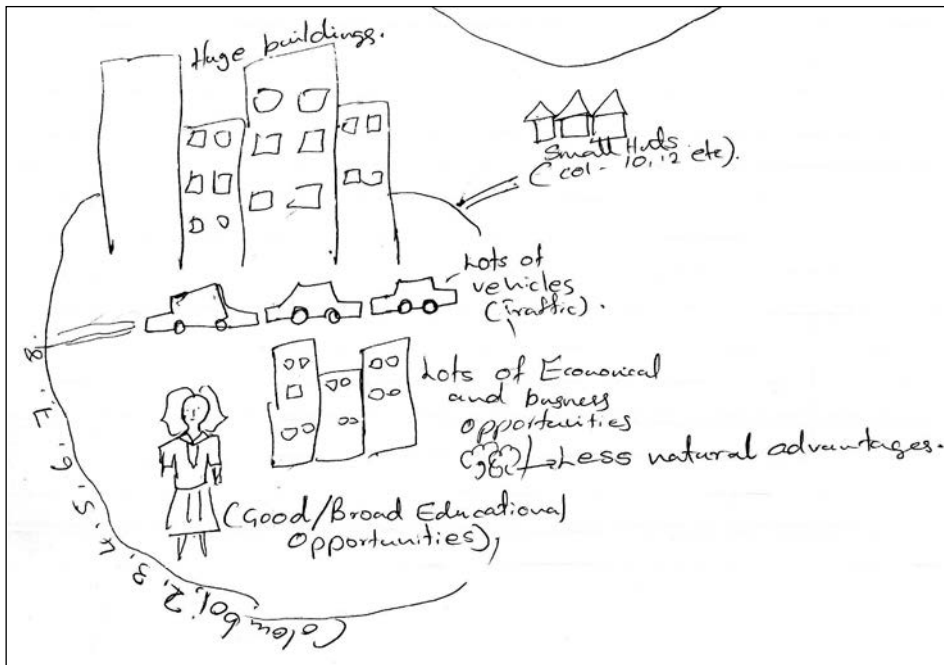 Huge buildings.
Small Huds
(col - 10, 12 etc).
Lots of
vehicles
(Traffic).
Lots of Economical
and busness
opportunities
Less natural advantages.
(Good/Broad Educational
opportunities),
Colombo 1, 2, 3, 4, 5, 6, 7, 8